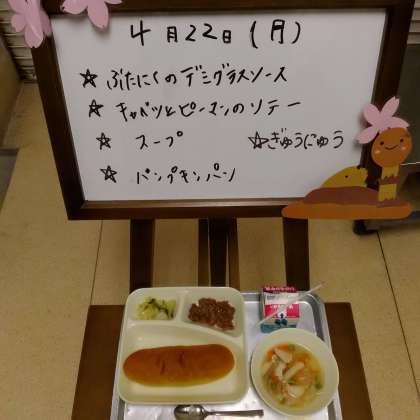 4月22日(月)
☆ ぶたにくのデミグラスソース
☆ キャベツとピーマンのソテー
☆ スープ ☆ぎゅうにゅう
☆ パンプキンパン